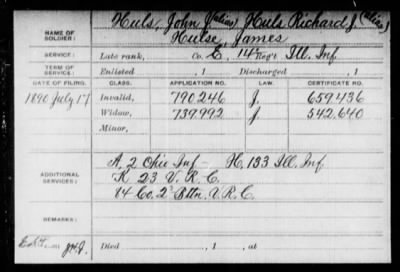 Huls, John (alias) Huls Richard J. (alias)
NAME OF SOLDIER: Hulse, James
SERVICE: Late rank, Co. E, 14 Reg't Ill. Inf
TERM OF SERVICE: Enlisted , 1 Discharged , 1
DATE OF FILING. CLASS. APPLICATION NO. LAW. CERTIFICATE NO.
1890 July 17 Invalid, 790.246 J. 659.436
Widow, 739.992 J. 542.640
Minor,
ADDITIONAL SERVICES: A, 2 Ohio Inf – H, 133 Ill. Inf
K 23 V. R. C.
14 Co. 2 Bttn. V. R. C.
REMARKS:
Died , 1 , at